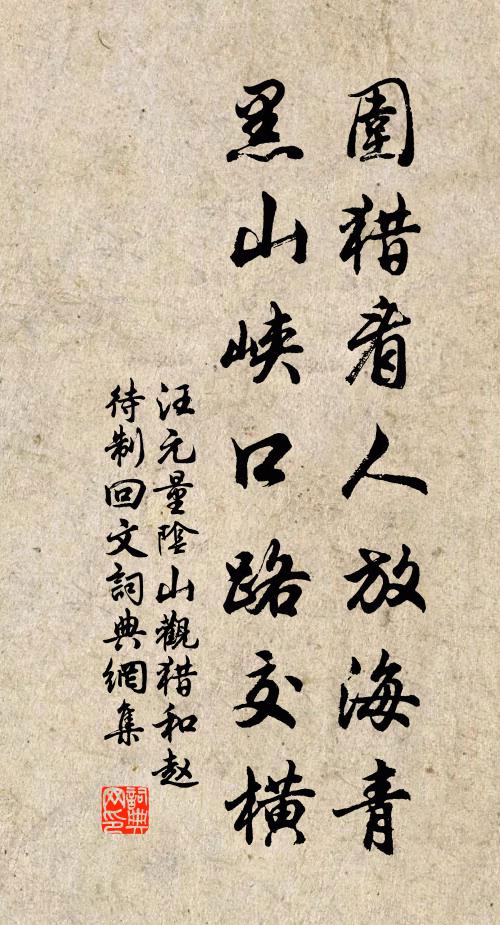 圍猎看人放海青
黑山峡口路交横
汪元量陰山觀猎和赵
待制回文詞典網集
詞典
网印